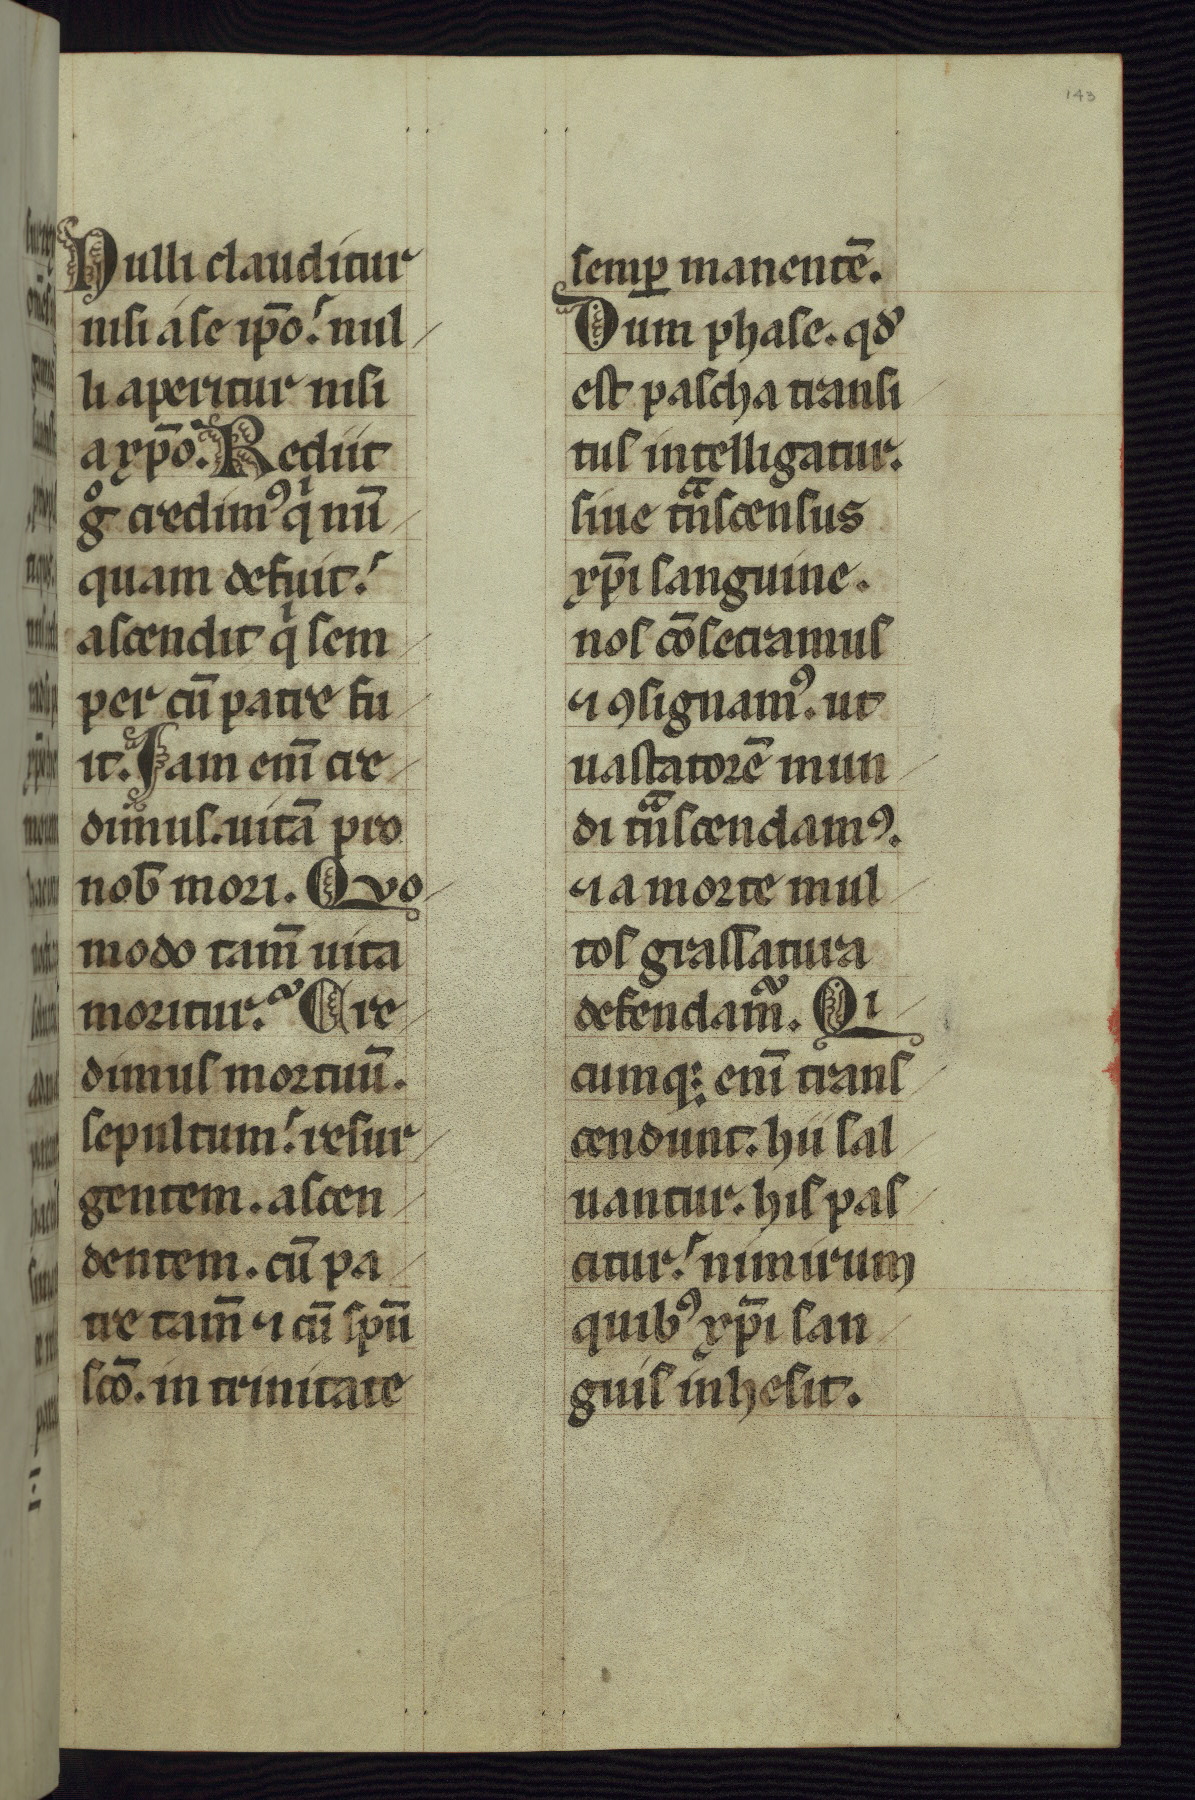 143
Nulli clauditur
nisi a se ip̄o. nul
li aperitur nisi
a xp̄o. Rediit
gͦ credimꝰ qͥ nū
quam defuit.
ascendit qͥ sem
per cū patre fu
it. Iam eni̅ cre
dimus. uitā pro
nob̄ mori. Quo
modo tam̄ uita
moritur. Cre
dimus mortuū.
sepultum. resur
gentem. ascen
dentem. cū pa
tre tam̄ ⁊ cū sp̄u
sc̄o. in trinitate
semꝑ manentē.
Dum phase. qđ
est pascha transi
tus intelligatur.
siue tͣnscensus
xp̄i sanguine.
nos cōsecramus
⁊ ꝯsignamꝰ. ut
uastatorē mun
di tͣnscendamꝰ.
⁊ a morte mul
tos grassatura
defendam̄. Qi
cumq; eni̅ trans
cendunt. hii sal
uantur. his pas
citur. nimirum
quibꝰ xp̄i san
guis inhesit.